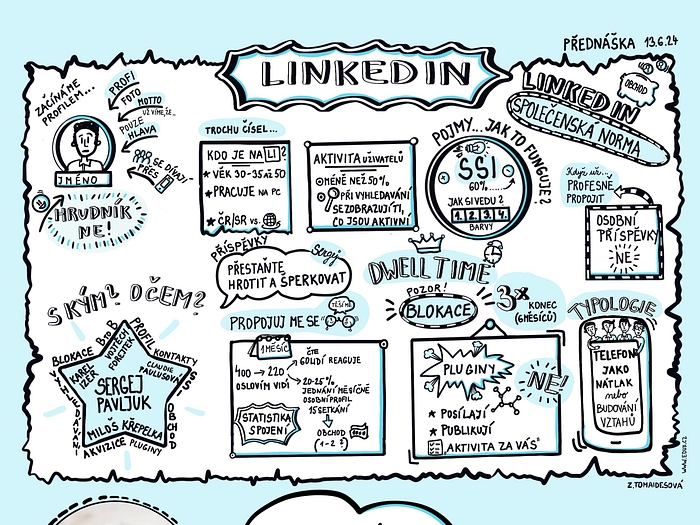 PŘEDNÁŠKA 13.6.24
LINKEDIN
ZAČÍNÁME
PROFILEM...
PROFI
FOTO
MOTTO
UŽ VÍME, ŽE...
POUZE
HLAVA
SE DÍVAJÍ
PŘES
JMÉNO
HRUDNÍK
NE!
TROCHU ČÍSEL...
KDO JE NA LI?
★ VĚK 30-35 AŽ 50
★ PRACUJE NA PC
★ ČR/SR VS.
AKTIVITA UŽIVATELŮ
MÉNĚ NEŽ 50%
PŘI VYHLEDÁVÁNÍ
SE ZOBRAZUJÍ TI,
CO JSOU AKTIVNÍ
POJMY... JAK TO FUNGUJE?
SSI
60%...
JAK SI VEDU?
1. 2. 3. 4.
BARVY
LINKEDIN
OBCHOD
SPOLEČENSKÁ NORMA
Když už...
PROFESNĚ
PROPOJIT
OSOBNÍ
PŘÍSPĚVKY
NE
PŘÍSPĚVKY
Sergej
PŘESTAŇTE
HROTIT A ŠPERKOVAT
DWELL TIME
POZOR!
BLOKACE
3x
KONEC
(6 MĚSÍCŮ)
S KÝM? O ČEM?
BLOKACE
KAREL
BtoB
VOJTĚCH
FOREJTEK
PROFIL
KONTAKTY
CLAUDIE
PAULUSOVÁ
SSI
OBCHOD
SERGEJ
PAVLJUK
MILOŠ KŘEPELKA
AKVIZICE PLUGINY
VYHLEDÁVÁNÍ
PROPOJUJ ME SE
TĚŠÍ MĚ
1 MĚSÍC
400 → 220
OSLOVÍM VIDÍ
ČTE
60 LIDÍ REAGUJE
20-25%
JEDNÁNÍ MĚSÍČNĚ
OSOBNÍ PROFIL
15 SETKÁNÍ
OBCHOD
(1-2 %)
STATISTIKA
SPOJENÍ
PLUGINY
NE!
★ POSÍLAJÍ
★ PUBLIKUJÍ
AKTIVITA ZA VÁS
TYPOLOGIE
TELEFON
JAKO
NÁTLAK
nebo
BUDOVÁNÍ
VZTAHŮ
Z.TOMAIDESOVÁ